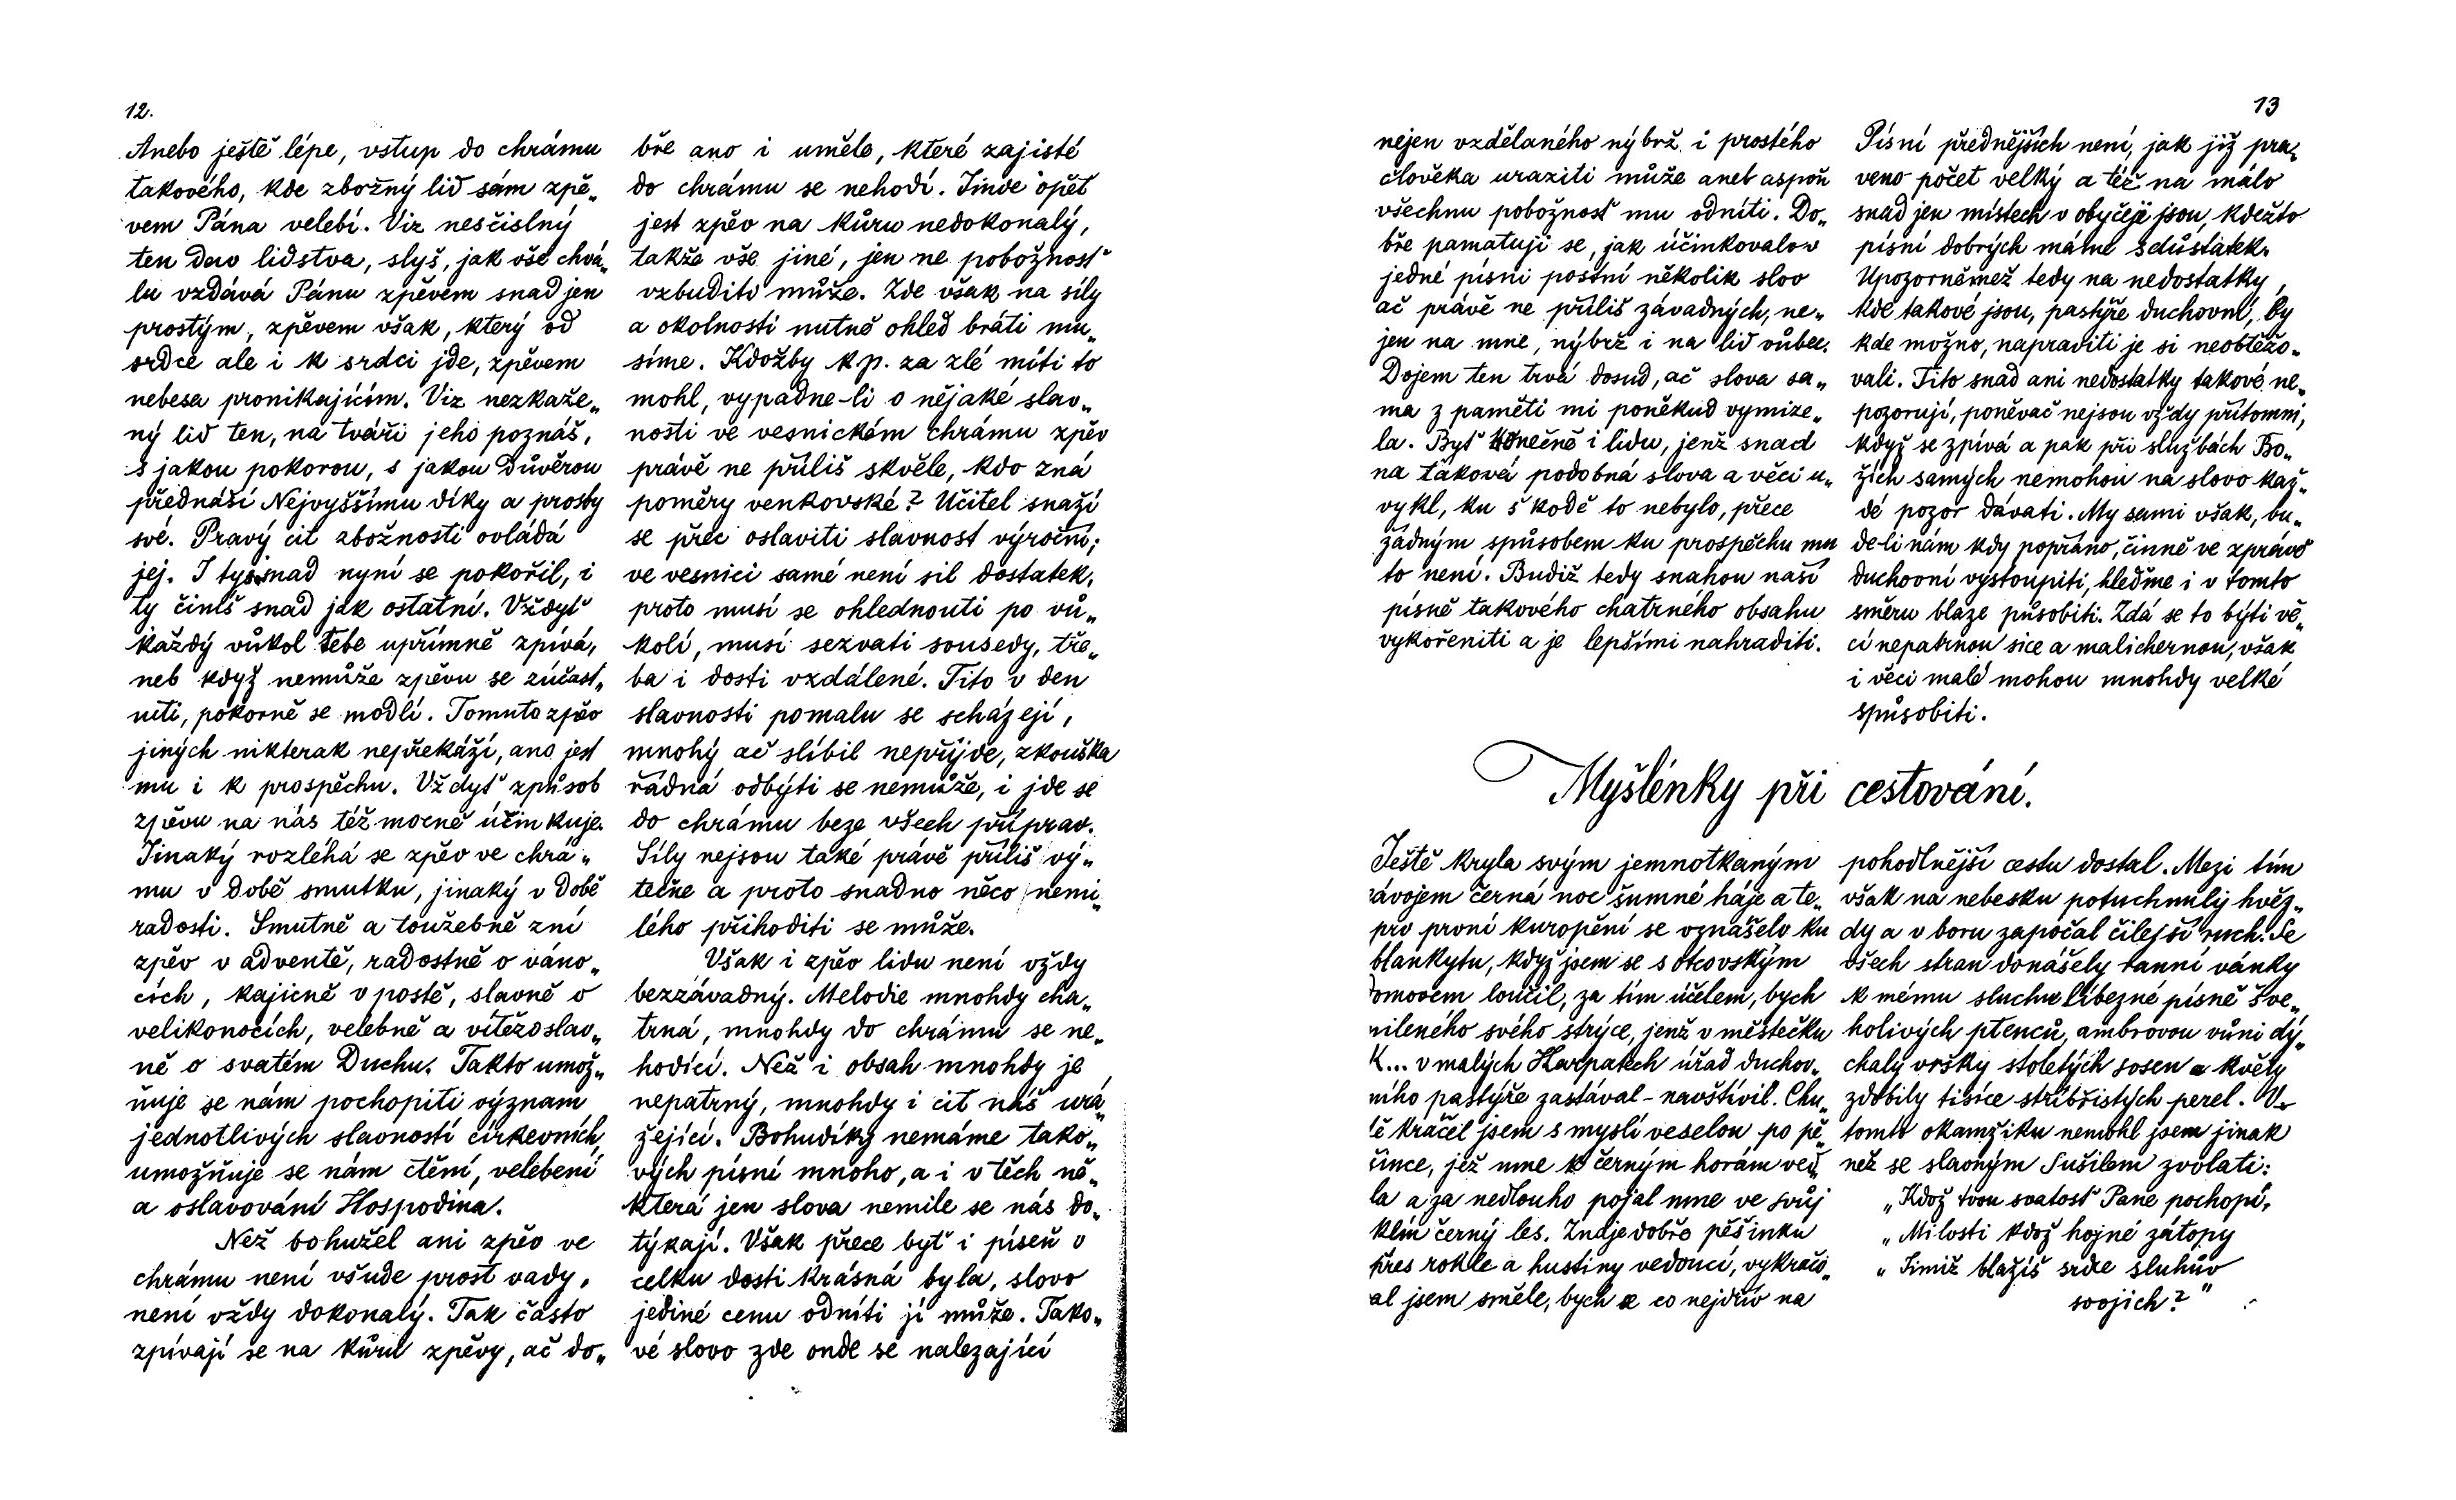 12.
Anebo ještě lépe, vstup do chrámu
takového, kde zbožný lid sám zpě„
vem Pána velebí. Viz nesčíslný
ten dav lidstva, slyš, jak vše chvá„
lu vzdává Pánu zpěvem snad jen
prostým, zpěvem však, který od
srdce ale i k srdci jde, zpěvem
nebesa pronikajícím. Viz nezkaže„
ný lid ten, na tváři jeho poznáš,
s jakou pokorou, s jakou důvěrou
přednáší Nejvyššímu díky a prosby
své. Pravý cit zbožnosti ovládá
jej. I tys snad nyní se pokořil, i
ty činíš snad jak ostatní. Vždyť
každý vůkol tebe upřímně zpívá,
neb když nemůže zpěvu se zúčast„
niti, pokorně se modlí. Tomuto zpěv
jiných nikterak nepřekáží, ano jest
mu i k prospěchu. Vždyť způsob
zpěvu na nás též mocně účinkuje.
Jinaký rozléhá se zpěv ve chrá„
mu v době smutku, jinaký v době
radosti. Smutně a toužebně zní
zpěv v adventě, radostně o váno„
cích, kajícně v postě, slavně o
velikonocích, velebně a vítězoslav„
ně o svatém Duchu. Takto umož„
ňuje se nám pochopiti význam
jednotlivých slavností církevních,
umožňuje se nám ctění, velebení
a oslavování Hospodina.
Než bohužel ani zpěv ve
chrámu není všude prost vady,
není vždy dokonalý. Tak často
zpívají se na kůru zpěvy, ač do„
bře ano i umělo, které zajisté
do chrámu se nehodí. Jinde opět
jest zpěv na kůru nedokonalý,
takže vše jiné, jen ne pobožnosť
vzbuditi může. Zde však na síly
a okolnosti nutně ohled bráti mu„
síme. Kdožby k.p. za zlé míti to
mohl, vypadne-li o nějaké slav„
nosti ve vesnickém chrámu zpěv
právě ne příliš skvěle, kdo zná
poměry venkovské? Učitel snaží
se přec oslaviti slavnost výroční;
ve vesnici samé není sil dostatek,
proto musí se ohlednouti po vů„
kolí, musí sezvati sousedy, tře„
ba i dosti vzdálené. Tito v den
slavnosti pomalu se scházejí,
mnohý ač slíbil nepřijde, zkouška
řádná odbýti se nemůže, i jde se
do chrámu beze všech příprav.
Síly nejsou také právě příliš vý„
tečne a proto snadno něco nemi„
lého přihoditi se může.
Však i zpěv lidu není vždy
bezzávadný. Melodie mnohdy cha„
trná, mnohdy do chrámu se ne„
hodící. Než i obsah mnohdy je
nepatrný, mnohdy i cit náš urá„
žející. Bohudíky nemáme tako„
vých písní mnoho, a i v těch ně„
která jen slova nemile se nás do„
týkají. Však přece byť i píseň v
celku dosti krásná byla, slovo
jediné cenu odníti jí může. Tako„
vé slovo zde onde se nalezající
13
nejen vzdělaného nýbrž i prostého
člověka uraziti může aneb aspoň
všechnu pobožnosť mu odníti. Do„
bře pamatuji se, jak účinkovalo
jedné písni postní několik slov
ač právě ne příliš závadných, ne„
jen na mne, nýbrž i na lid vůbec.
Dojem ten trvá dosud, ač slova sa„
ma z paměti mi poněkud vymize„
la. Byť konečně i lidu, jenž snad
na taková podobná slova a věci u„
vykl, ku škodě to nebylo, přece
žádným spůsobem ku prospěchu mu
to není. Budiž tedy snahou naší
písně takového chatrného obsahu
vykořeniti a je lepšími nahraditi.
Písní přednějších není, jak již pra„
veno počet velký a též na málo
snad jen místech v obyčeji jsou, kdežto
písní dobrých máme sdůstatek.
Upozorněmež tedy na nedostatky,
kde takové jsou, pastýře duchovní, by
kde možno, napraviti je si neobtěžo„
vali. Tito snad ani nedostatky takové ne„
pozorují, poněvač nejsou vždy přítomni,
když se zpívá a pak při službách Bo„
žích samých nemohou na slovo kaž„
dé pozor dávati. My sami však, bu„
de-li nám kdy popřáno, činně ve zprávě
duchovní vystoupiti, hleďme i v tomto
směru blaze působiti. Zdá se to býti vě„
cí nepatrnou sice a malichernou, však
i věci malé mohou mnohdy velké
spůsobiti.
Myšlénky při cestování.
Ještě kryla svým jemnotkaným
závojem černá noc šumné háje a te„
prv první kuropění se vznášelo ku
blankytu, když jsem se s otcovským
domovem loučil, za tím účelem, bych
mileného svého strýce, jenž v městečku
K... v malých Karpatech úřad duchov„
ního pastýře zastával – navštívil. Chu„
tě kráčel jsem s myslí veselou po pě„
šince, jež mne k černým horám ved„
la a za nedlouho pojal mne ve svůj
klín černý les. Znaje dobře pěšinku
přes rokle a hustiny vedoucí, vykračo„
al jsem směle, bych co nejdřív na
pohodlnější cestu dostal. Mezi tím
však na nebesku potuchnuly hvěz„
dy a v boru započal čilejší ruch. Se
všech stran donášely ranní vánky
k mému sluchu líbezné písně šve„
holivých ptenců, ambrovou vůni dý„
chaly vršky stoletých sosen a květy
zdobily tisíce stříbřistých perel. V
tomto okamžiku nemohl jsem jinak
než se slavným Sušilem zvolati:
„Kdož tvou svatosť Pane pochopí,
„Milosti kdož hojné zátopy
„Jimiž blažíš srdce sluhův
svojich?"